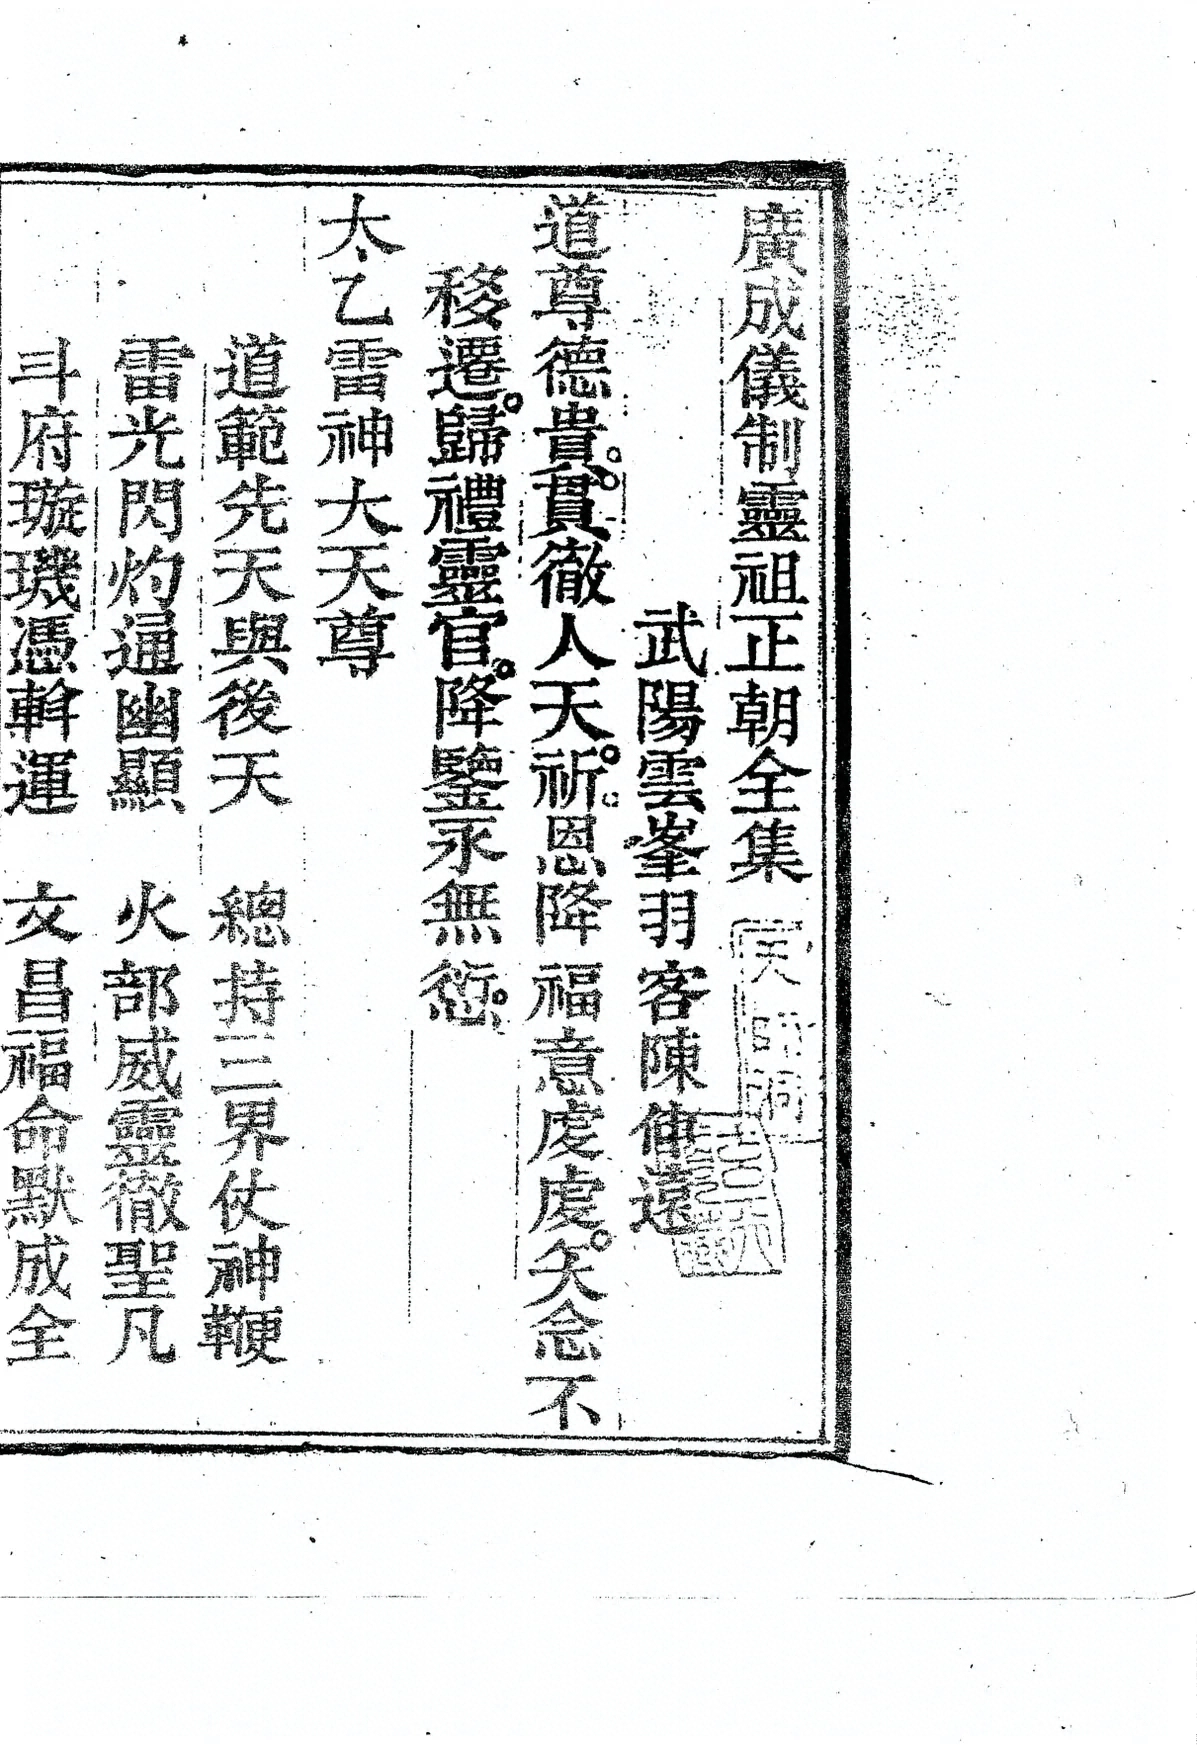 廣成儀制靈祖正朝全集
天師洞
武陽雲峯羽客陳仲遠
道尊德貴貫徹人天祈恩降福意虔虔矢念不
移遷歸禮靈官降鑒永無愆
太乙雷神大天尊
道範先天與後天　總持三界仗神鞭
雷光閃灼通幽顯　火部威靈徹聖凡
斗府璇璣憑斡運　文昌福命默成全